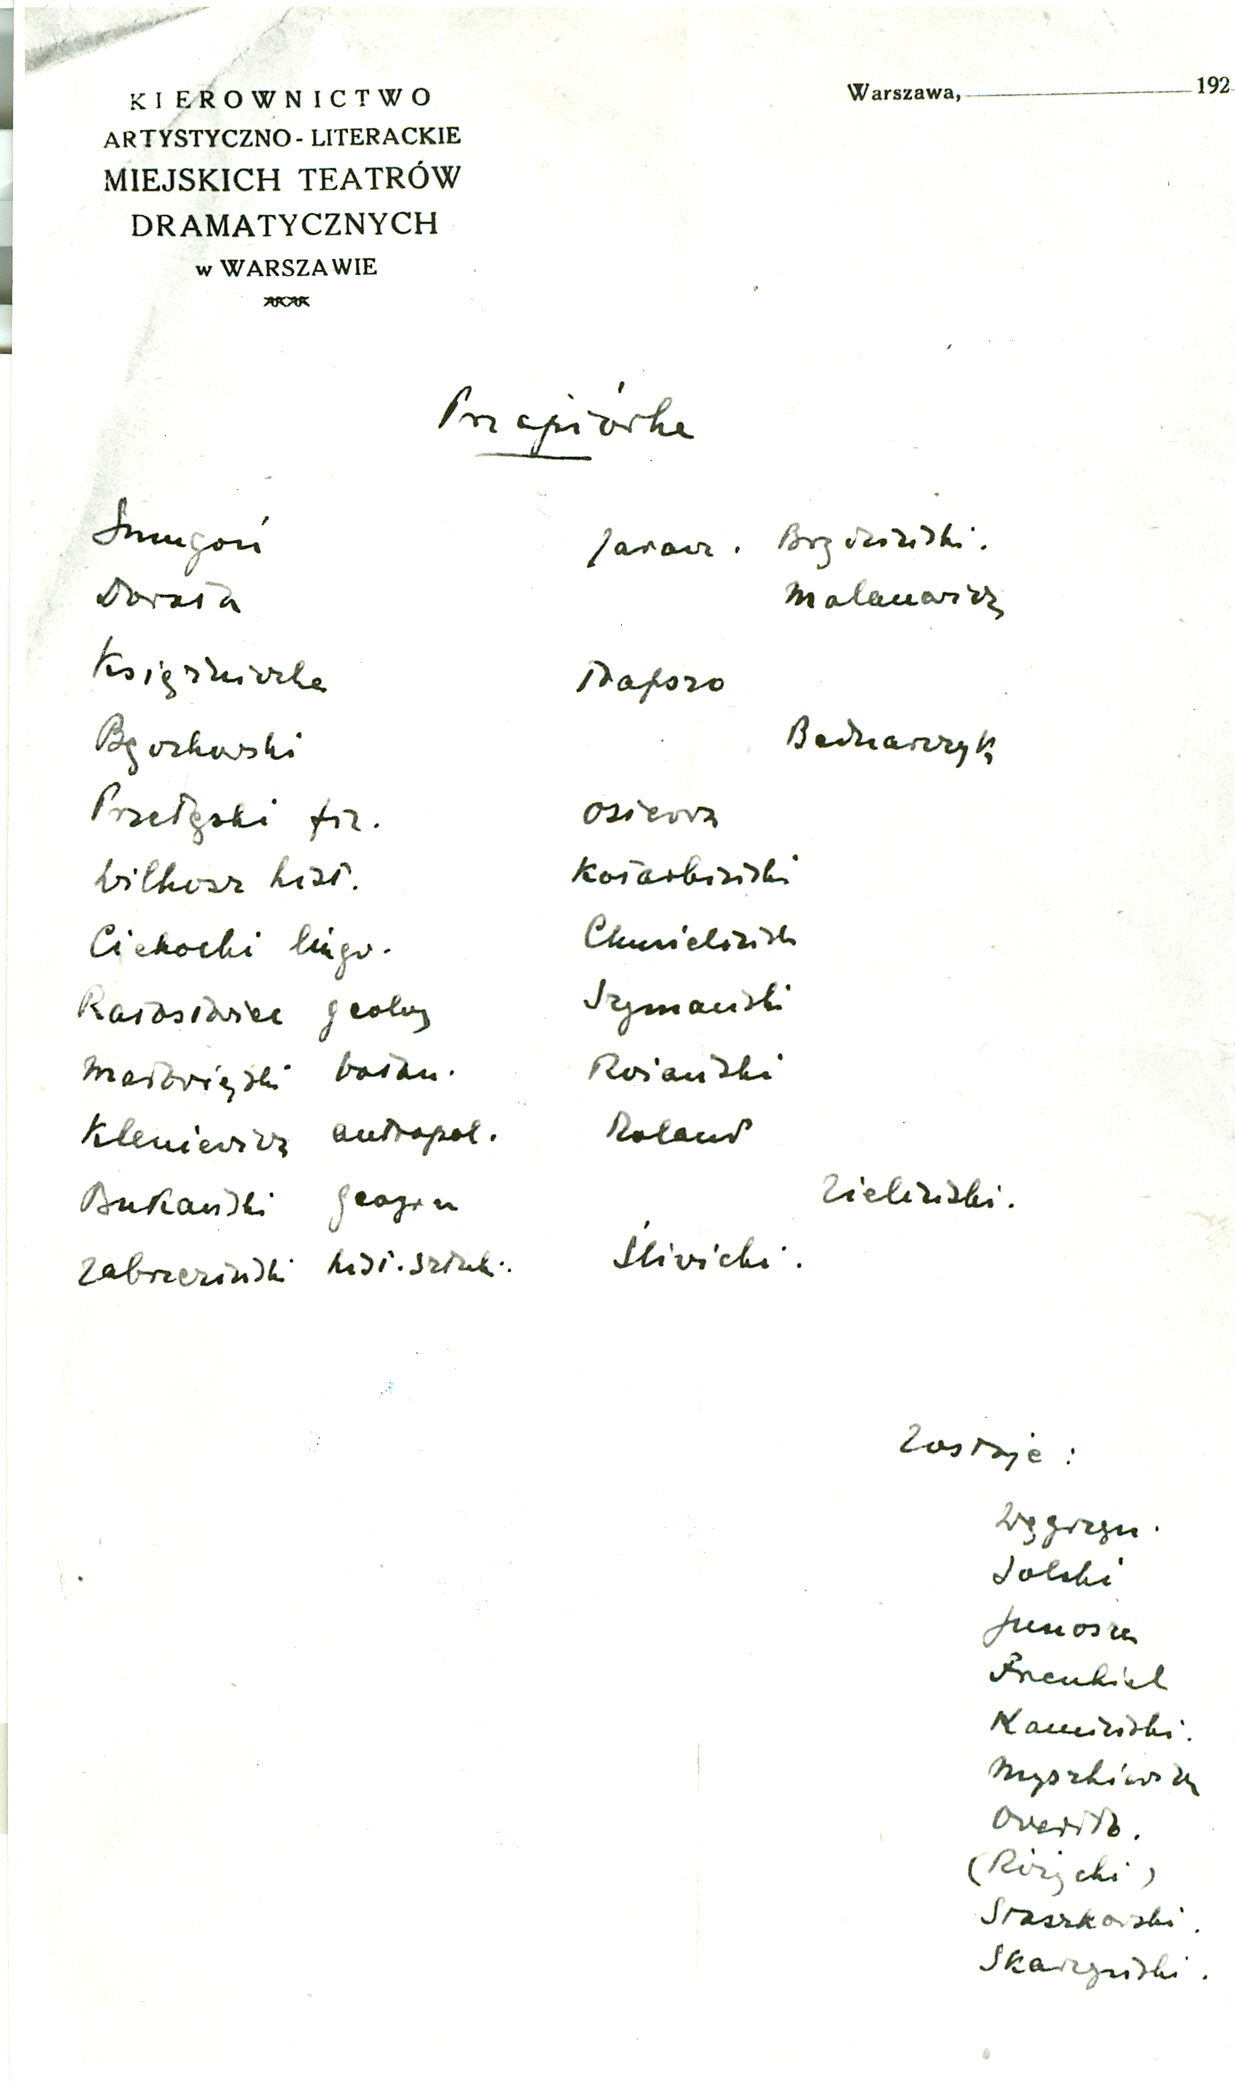 KIEROWNICTWO
ARTYSTYCZNO-LITERACKIE
MIEJSKICH TEATRÓW
DRAMATYCZNYCH
w WARSZAWIE
Warszawa, 192
Przepiórka
Smugoń Jaracz. Brydziński.
Dorota Malanowicz
Księżniczka
Bęczkowski Bednarczyk
Przełęcki fiz. Osterwa
Wilkosz hist. Kotarbiński
Ciekocki lingw. Chmieliński
Radostowiec geolog Szymański
Małowieski botan.
Kleniewicz antropol. Roland
Bukański geogra Zieliński.
Zabrzeziński hist. sztuk. Śliwicki.
Zostaje:
Węgrzyn.
Solski
Junosza
Frenkiel
Kamiński.
Myszkiewicz
Owerłło.
(Różycki)
Staszkowski.
Skarzyński.